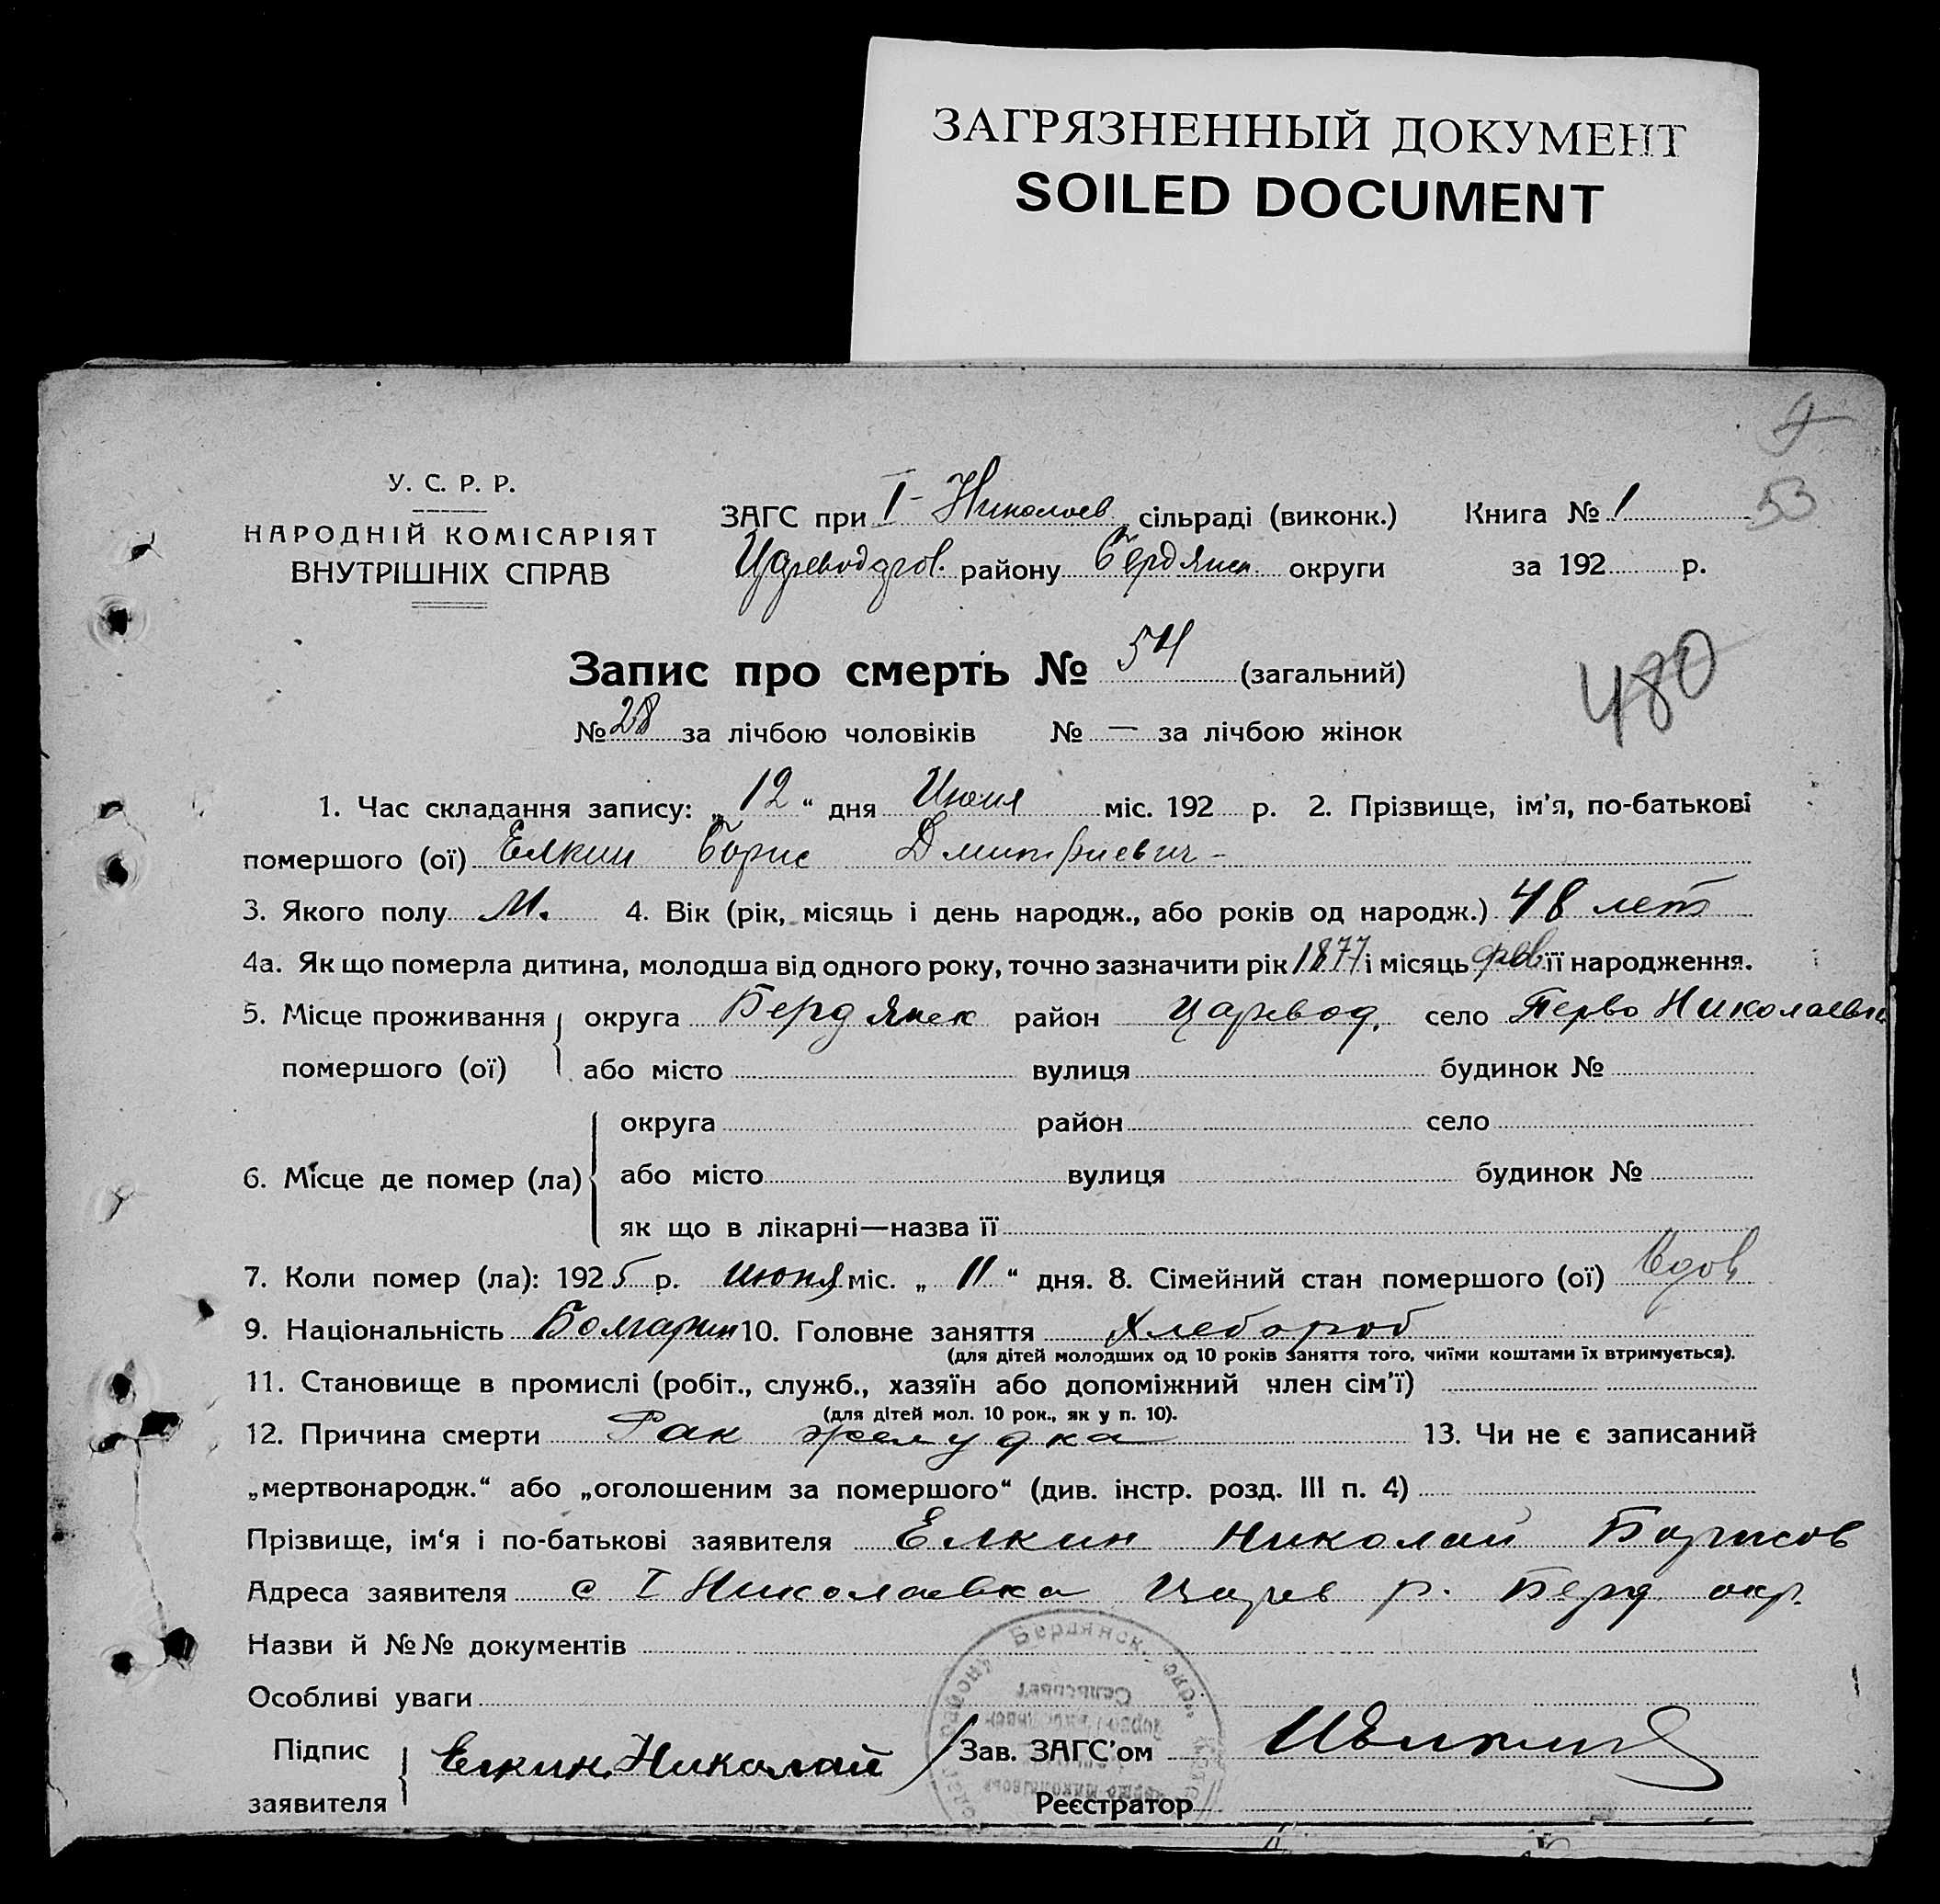 ЗАГРЯЗНЕННЫЙ ДОКУМЕНТ
SOILED DOCUMENT
53
У. С. Р. Р.
НАРОДНІЙ КОМІСАРІЯТ
ВНУТРІШНІХ СПРАВ
ЗАГС при I- Николаев. сільраді (виконк.) Книга № 1
району Бердянск. округи за 192 р.
480
Запис про смерть № 54 (загальний)
№ 28 за лічбою чоловіків № — за лічбою жінок
1. Час складання запису: „ 12 “ дня Июня міс. 192 р. 2. Прізвище, ім'я, по-батькові
помершого (ої) Елкин Борис Дмитриевич -
3. Якого полу М. 4. Вік (рік, місяць і день народж., або років од народж.) 48 лет
4а. Як що померла дитина, молодша від одного року, точно зазначити рік 1877 і місяць фев її народження.
5. Місце проживання округа Бердянск район Царевод. село Перво Николаевка
помершого (ої) або місто вулиця будинок №
округа район село
6. Місце де помер (ла) або місто вулиця будинок №
як що в лікарні—назва її
7. Коли помер (ла): 1925 р. Июня міс. „ 11 “ дня. 8. Сімейний стан помершого (ої) Вдов
9. Національність Болгарин 10. Головне заняття Хлебороб
(для дітей молодших од 10 років заняття того, чиїми коштами їх втримується).
11. Становище в промислі (робіт., служб., хазяїн або допоміжний член сім'ї)
(для дітей мол. 10 рок., як у п. 10).
12. Причина смерти Рак желудка 13. Чи не є записаний
„мертвонародж.“ або „оголошеним за помершого“ (див. інстр. розд. III п. 4)
Прізвище, ім'я і по-батькові заявителя Елкин Николай Борисов
Адреса заявителя с I Николаевка Царев р. Берд. окр.
Назви й №№ документів
Особливі уваги
Бердянск. окр.
Сельсовет
Підпис
заявителя
Елкин Николай
Зав. ЗАГС'ом
Реєстратор